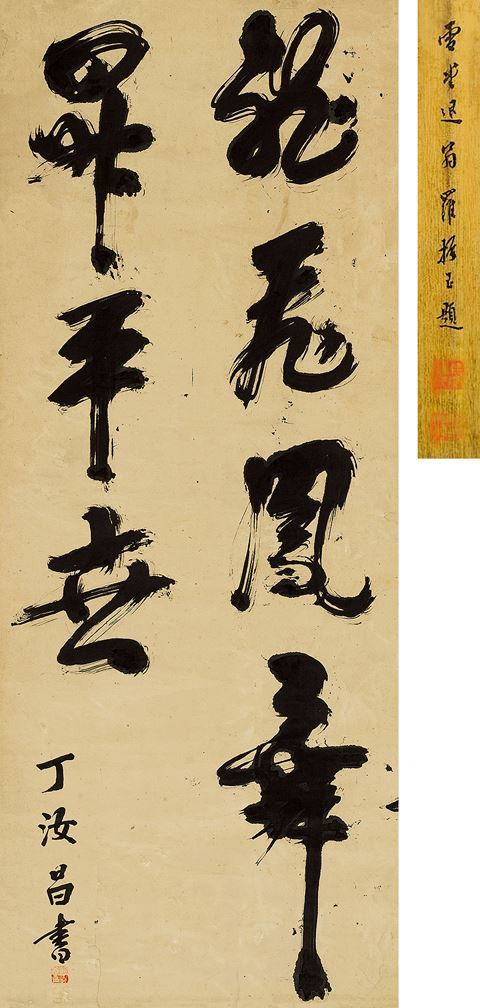 龍飛鳳舞
昇平世
丁汝昌書
雪堂退翁羅振玉題